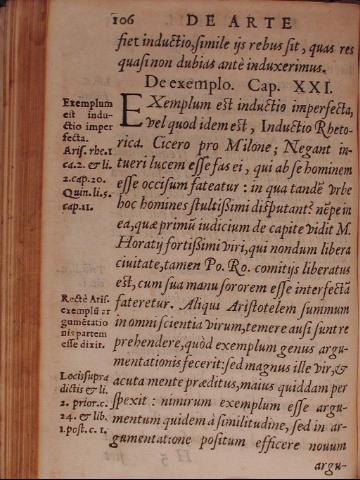 106 DE ARTE
fiet inductio, simile ijs rebus sit, quas res
quasi non dubias antè induxerimus.
De exemplo. Cap. XXI.
EXemplum est inductio imperfecta,
vel quod idem est, Inductio Rheto-
rica. Cicero pro Milone; Negant in-
tueri lucem esse fas ei, qui ab se hominem
esse occisum fateatur: in qua tandē vrbe
hoc homines stultißimi disputant? nēpe in
ea, quæ primū iudicium de capite vidit M.
Horatij fortißimi viri, qui nondum libera
ciuitate, tamen Po. Ro. comitijs liberatus
est, cum sua manu sororem esse interfectā
fateretur. Aliqui Aristotelem summum
in omni scientia virum, temere ausi sunt re
prehendere, quòd exemplum genus argu-
mentationis fecerit: sed magnus ille vir, &
acuta mente præditus, maius quiddam per
spexit: nimirum exemplum esse argu-
mentum quidem à similitudine, sed in ar-
gumentatione positum efficere nouum
argu-
Exemplum
est indu-
ctio imper
fecta.
Aris. rhe. 1
ca. 2. & li.
2. cap. 20.
Quin. li. 5.
cap. 11.
Rectè Aris.
exemplū ar
gumētatio
nis partem
esse dixit.
Locis supra
dictis & li.
2. prior. c.
24. & lib.
1. post. c. 1.